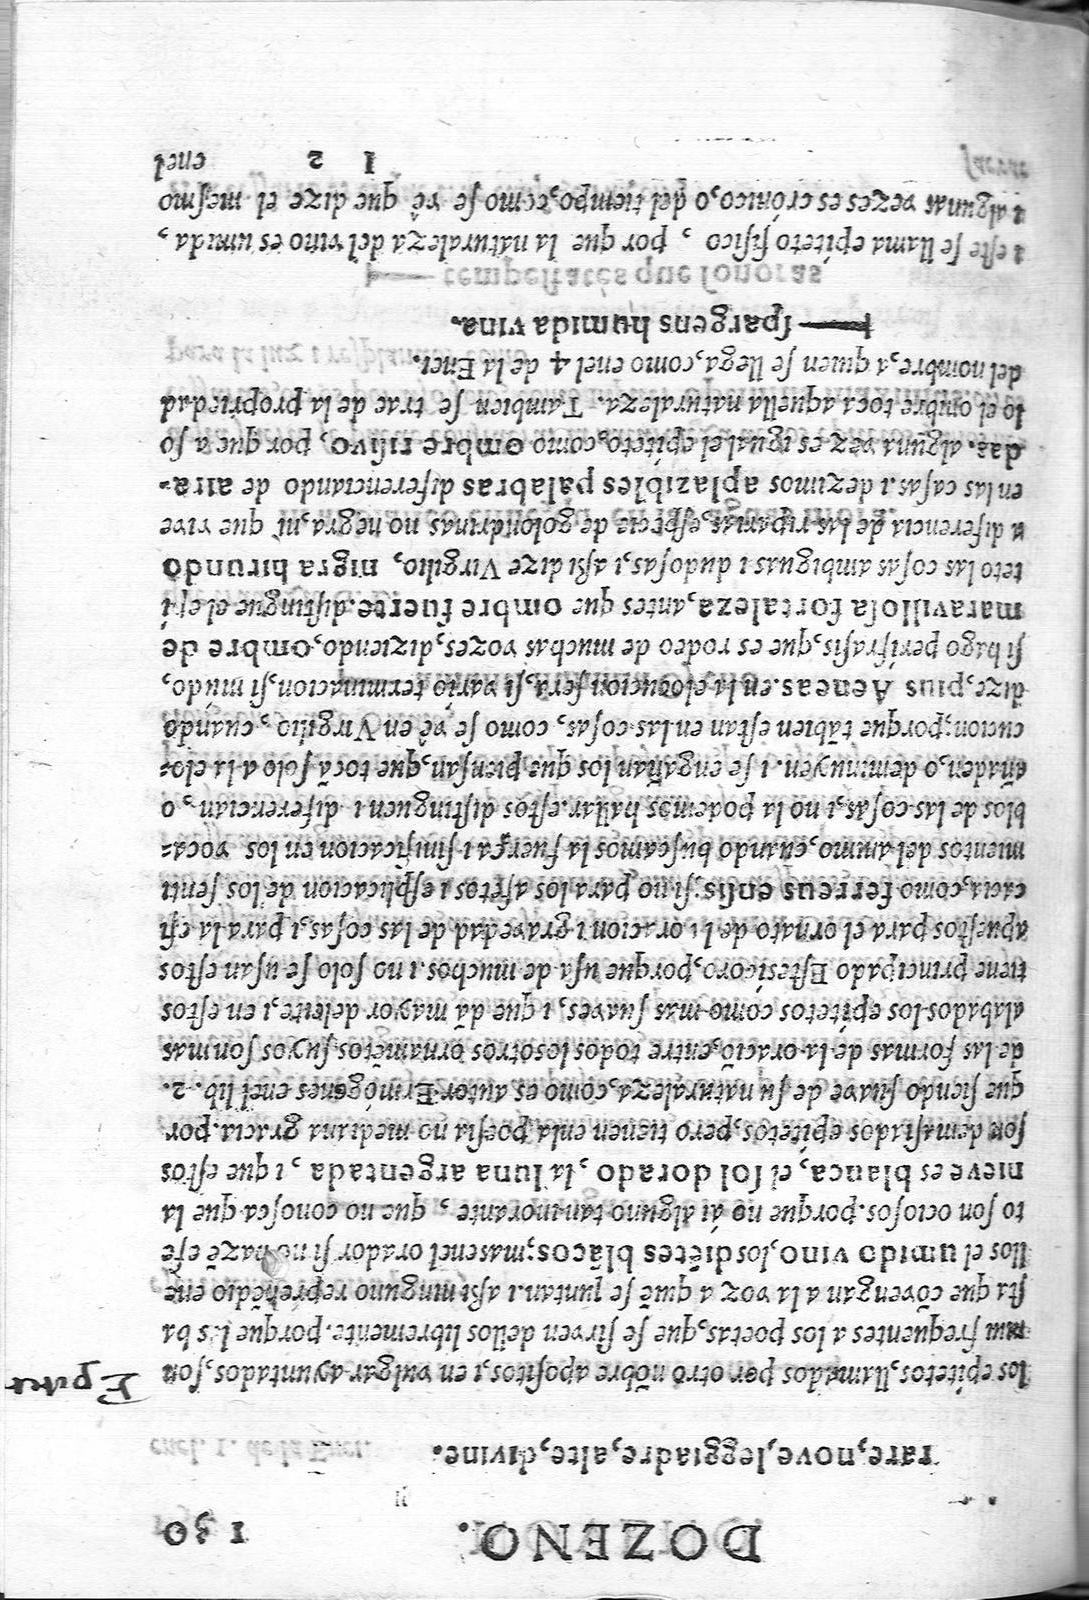 DOZENO. 130
rare, nove, leggiadre, alte, divine.
los epítetos, llamados por otro nõbre apositos, i en vulgar ayuntados, son
mui frequentes a los poetas, que se sirven dellos libremente. porque les ba
sta que cõvengan a la voz a quiẽ se juntan. i assi ninguno reprehẽdio ene
llos el umido vino, los diẽtes blãcos; mas enel orador si no hazẽ efe
to son ociosos. porque no ái alguno tan inorante, que no conosca que la
nieve es blanca, el sol dorado, la luna argentada, i que estos
son demasiados epítetos, pero tienen enla poesia no mediana gracia. por
que siendo suave de su naturaleza, como es autor Ermógenes enel lib. 2.
de las formas de la oraciõ, entre todos los otros ornamẽtos suyos son mas
alabados los epítetos como mas suaves, i que dã mayor deleite, i en estos
tiene principado Estesícoro, porque usa de muchos. i no solo se usan estos
apuestos para el ornato de la oracion i gravedad de las cosas, i para la efi
cacia, como ferreus ensis; si no para los afetos i esplicacion de los senti
mientos del animo, cuando buscamos la fuerça i sinificacion en los voca-
blos de las cosas, i no la podemos hallar. estos distinguen i diferencian, o
añaden, o deminuyen. i se engañan los que piensan, que tocã solo a la elo-
cucion; porque tãbien estan en las cosas, como se vê en Virgilio, cuando
dize, pius Aeneas. en la elocucion sera, si vário terminacion, si múdo,
si hago perífrasis, que es rodeo de muchas vozes, diziendo, ombre de
maravillosa fortaleza, antes que ombre fuerte. distingue el epí
teto las cosas ambiguas i dudosas, i assi dize Virgilio, nigra hirundo
a diferencia de las riparias, especie de golondrinas no negra, ni que vive
en las casas. i dezimos aplazibles palabras diferenciando de aira-
das. alguna vez es igual el epíteto, como ombre risivo, porque a so
lo el ombre toca aquella naturaleza. Tambien se trae de la propriedad
del nombre, a quien se llega, como enel 4 de la Enei.
—— spargens humida vina.
a este se llama epíteto fisico, por que la naturaleza del vino es umida,
algunas vezes es crónico, o del tiempo, como se vê que dize el mesmo
I 2 enel